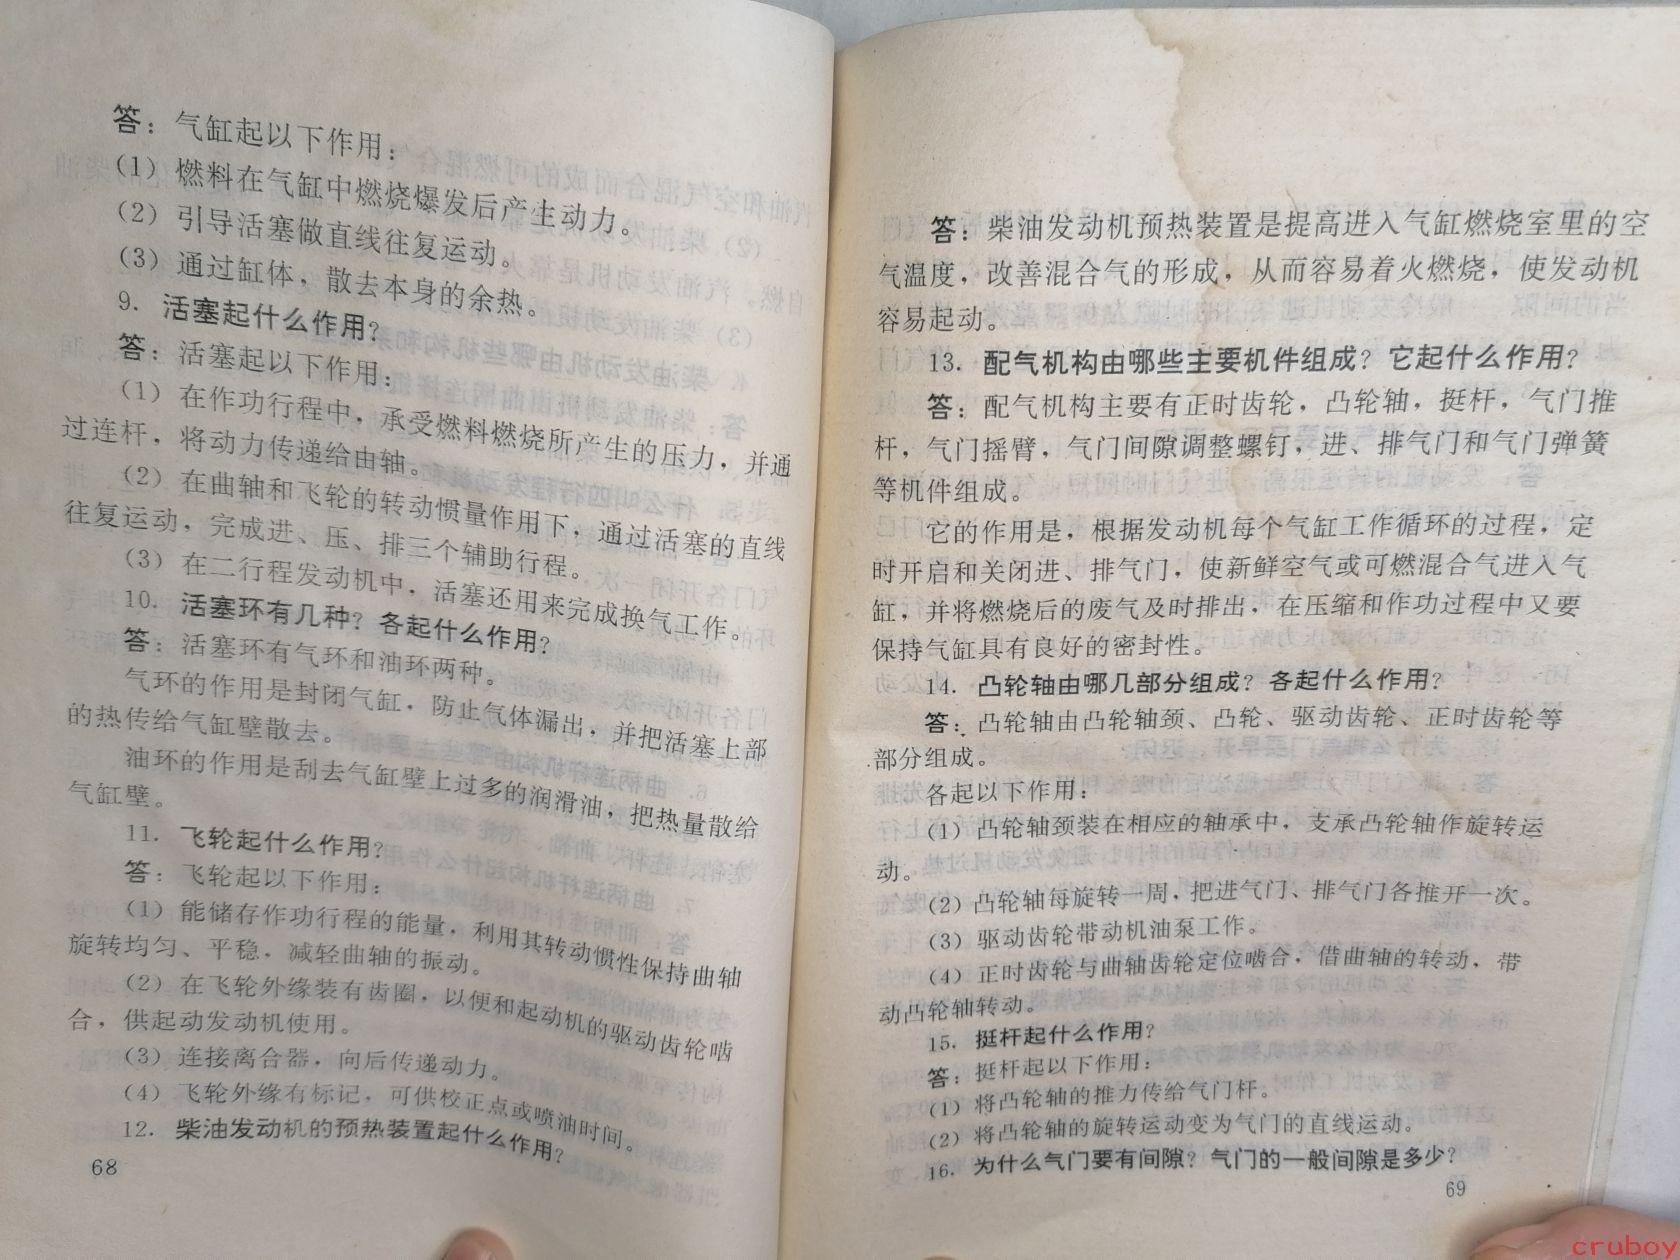 答：气缸起以下作用：
（1）燃料在气缸中燃烧爆发后产生动力。
（2）引导活塞做直线往复运动。
（3）通过缸体，散去本身的余热。
9．活塞起什么作用？
答：活塞起以下作用：
（1）在作功行程中，承受燃料燃烧所产生的压力，并通
过连杆，将动力传递给由轴。
（2）在曲轴和飞轮的转动惯量作用下，通过活塞的直线
往复运动，完成进、压、排三个辅助行程。
（3）在二行程发动机中，活塞还用来完成换气工作。
10．活塞环有几种？各起什么作用？
答：活塞环有气环和油环两种。
气环的作用是封闭气缸，防止气体漏出，并把活塞上部
的热传给气缸壁散去。
油环的作用是刮去气缸壁上过多的润滑油，把热量散给
气缸壁。
11．飞轮起什么作用？
答：飞轮起以下作用：
（1）能储存作功行程的能量，利用其转动惯性保持曲轴
旋转均匀、平稳，减轻曲轴的振动。
（2）在飞轮外缘装有齿圈，以便和起动机的驱动齿轮啮
合，供起动发动机使用。
（3）连接离合器，向后传递动力。
（4）飞轮外缘有标记，可供校正点或喷油时间。
12．柴油发动机的预热装置起什么作用？
68
答：柴油发动机预热装置是提高进入气缸燃烧室里的空
气温度，改善混合气的形成，从而容易着火燃烧，使发动机
容易起动。
13．配气机构由哪些主要机件组成？它起什么作用？
答：配气机构主要有正时齿轮，凸轮轴，挺杆，气门推
杆，气门摇臂，气门间隙调整螺钉，进、排气门和气门弹簧
等机件组成。
它的作用是，根据发动机每个气缸工作循环的过程，定
时开启和关闭进、排气门，使新鲜空气或可燃混合气进入气
缸，并将燃烧后的废气及时排出，在压缩和作功过程中又要
保持气缸具有良好的密封性。
14．凸轮轴由哪几部分组成？各起什么作用？
答：凸轮轴由凸轮轴颈、凸轮、驱动齿轮、正时齿轮等
部分组成。
各起以下作用：
（1）凸轮轴颈装在相应的轴承中，支承凸轮轴作旋转运
动。
（2）凸轮轴每旋转一周，把进气门、排气门各推开一次。
（3）驱动齿轮带动机油泵工作。
（4）正时齿轮与曲轴齿轮定位啮合，借曲轴的转动，带
动凸轮轴转动。
15．挺杆起什么作用？
答：挺杆起以下作用：
（1）将凸轮轴的推力传给气门杆。
（2）将凸轮轴的旋转运动变为气门的直线运动。
16．为什么气门要有间隙？气门的一般间隙是多少？
69
cruboy